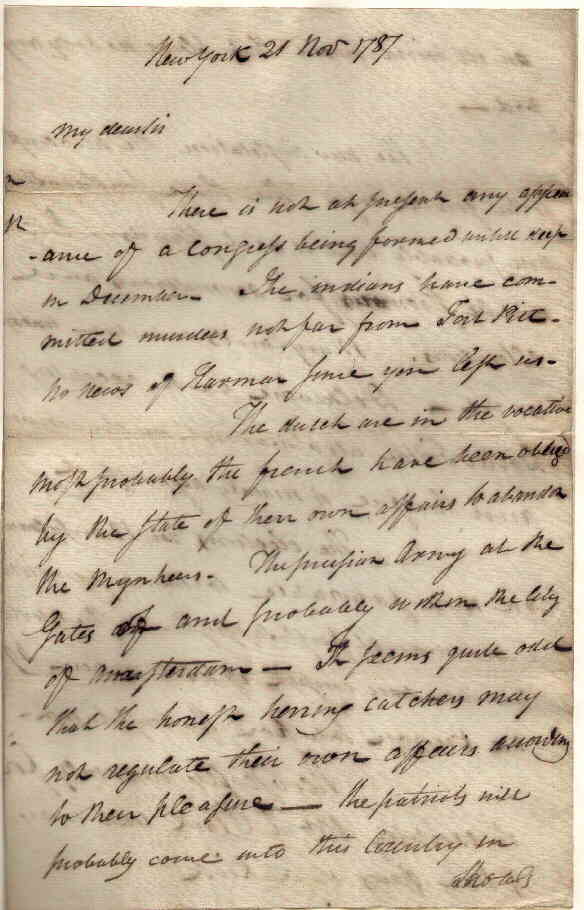 New York 21 Nov 1787
My dear sir
There is not at present any appear
-ance of a Congress being formed untill deep
in December - The indians have com-
mitted murders not far from Fort Pitt -
no news of Harmar since you left us -
The dutch are in the vocative
most probably the french have been obliged
by the state of their own affairs to abandon
the Mynheers - The prussian Army at the
Gates of and probably within the City
of amsterdam — It seems quite odd
that the honest herring catchers may
not regulate their own affairs according
to their pleasure — the patriots will
probably come into this Country in
shoals